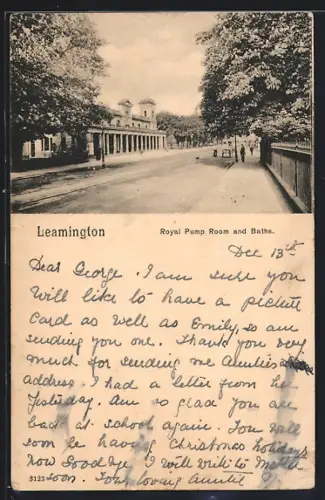 Leamington
Royal Pump Room and Baths.
Dec 13th
Dear George. I am sure you
will like to have a picture
card as well as Emily, so am
sending you one. Thank you very
much for sending me Aunties
address. I had a letter from her
Yesterday. Am so glad you are
back at school again. You will
soon be having Christmas holidays
now Good bye I will write to
3125 soon. Your loving Auntie